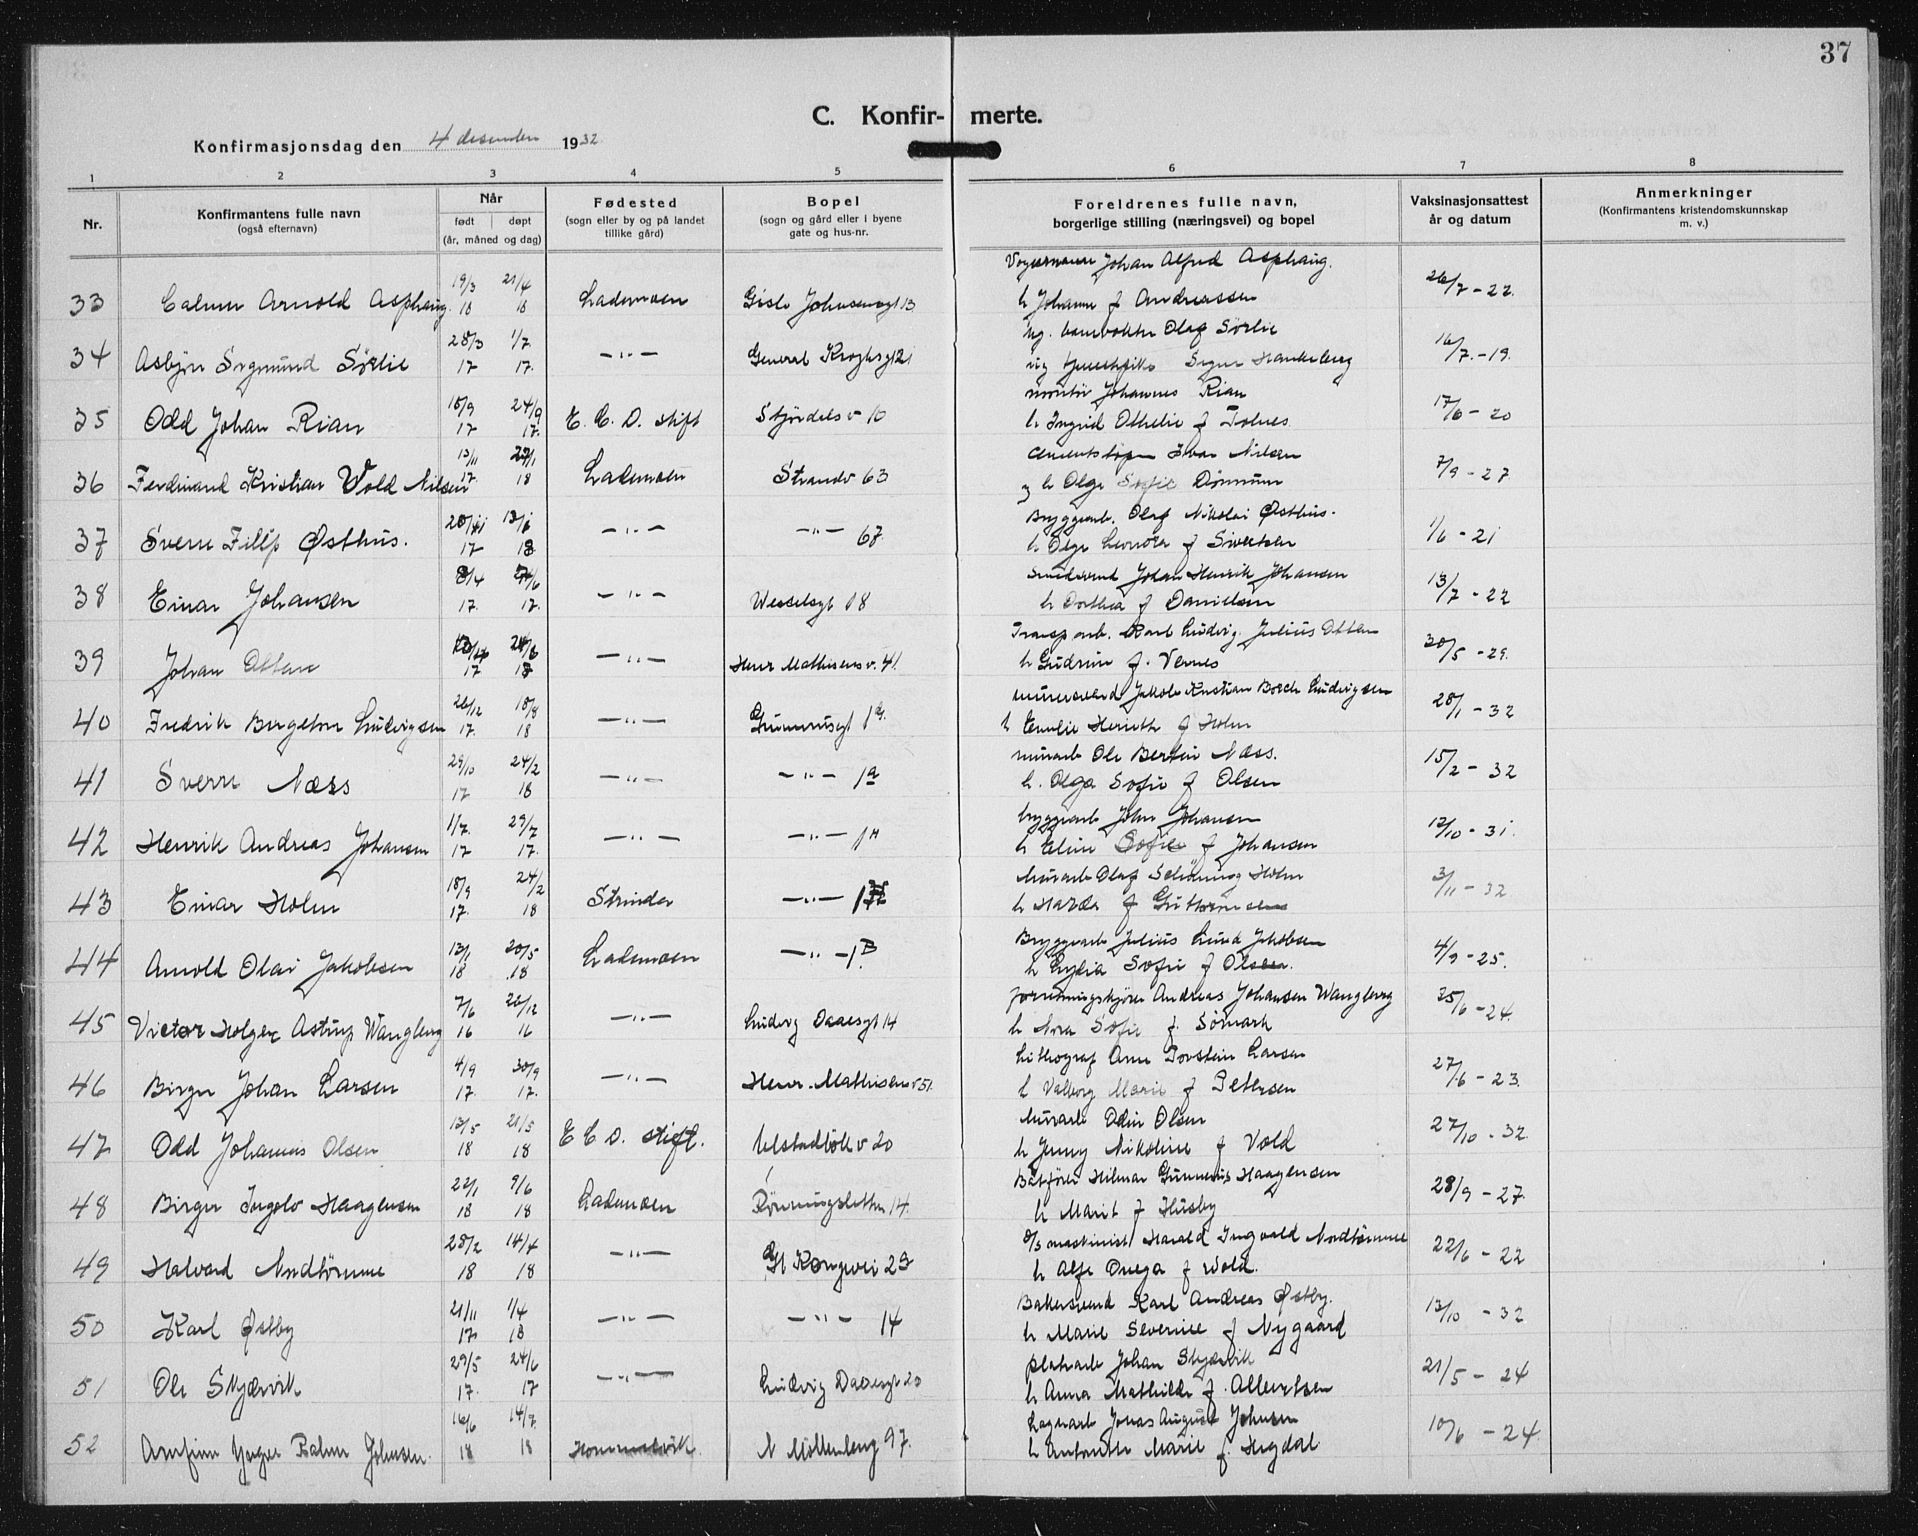 37
C. Konfir- merte.
Konfirmasjonsdag den 4 desember 1932
1 2 3 4 5 6 7 8
Nr.
Konfirmantens fulle navn
(også efternavn)
Når
født døpt
(år, måned og dag)
Fødested
(sogn eller by og på landet
tillike gård)
Bopel
(sogn og gård eller i byene
gate og hus-nr.
Foreldrenes fulle navn,
borgerlige stilling (næringsvei) og bopel
Vaksinasjonsattest
år og datum
Anmerkninger
(Konfirmantens kristendomskunnskap
m. v.)
Johan Alfred Asphaug.
33 Calmer Arnold Asphaug 19/3 18 21/4 18 Lademoen 13 h Johanne f Andreassen 26/7 - 22.
Olaf Sörlie
34 Asbjørn Sigmund Sörlie 28/3 17 1/7 17. —"— General Kroghsgt 21 16/7. - 19.
montør Johannes Rian
35 Odd Johan Rian 18/9 17 24/9 17. E. C. D. stift Stjördalsv 10 h Ingrid Othelie f Tolnes 17/6 - 20
Ivar Nilsen
36 Ferdinand Kristian Vold Nilsen 13/11 17. 18 Lademoen Strandv 63 h Olga Sofie Dönnum 7/9 - 27
Bryggearb. Olaf Nikolai Østhus.
37 Sverre Filip Østhus. 17 18 —"— —"— 67. h Olga Leonora f Sivertsen 1/6 - 21
Johan Henrik Johansen
38 Einar Johansen 17. 17. —"— Wesselsgt 18 h Dorthea f Danielsen 13/7 - 22
Transp arb. Karl Ludvig Julius Otten
39 Johan Otten 17 —"— Henr Mathisens v. 41. h Gudrun f. Vernes 30/5 - 29.
Jakob Kristian Bosch Ludvigsen
40 Fredrik Bergeton Ludvigsen 26/12 17. 18/8 18 —"— Gunnerusgt 1 G. f Holm 28/1 - 32
murarb Ole Bertin Næss.
41 Sverre Næss 29/10 17 24/2 18 —"— —"— 1a h. Olga Sofie f Olsen 15/2 - 32
bryggearb John Johansen
42 Henrik Andreas Johansen 1/7. 17 29/7 17. —"— —"— 1H h Eline Sofie f Johansen 12/10 - 31.
Murarb Olaf Schöning Holm
43 Einar Holm 18/9 17. 24/2 18 Strinda —"— h Harda f Guttormsen 3/11 - 32
Bryggearb Julius Lund Jakobsen
44 Arnold Olai Jakobsen 13/1 18 20/5 18 Lademoen —"— 1B. h Lydia Sofie f Olsen. 4/9 - 25.
forretningskjører Andreas Johansen Wangberg
45 Victor Holger Astrup Wangberg 7/6 16 26/12 16 —"— Ludvig Daaesgt 14 h Nora Sofie f. Sömark 25/6 - 24.
Lithograf Arne Torstein Larsen
46 Birger Johan Larsen 4/9 17. 30/9 17. —"— Henr. Mathisensv 51. h Valborg Marie f Petersen 27/6 - 23.
Murarb Odin Olsen
47 Odd Johannes Olsen 13/5 18 21/5 18 E C D. stift. Ulstadlökv 20 h Jenny Nikoline f Vold 27/10 - 32.
Båtfører Hilmar Gunnerius Haagensen
48 Birger Ingolv Haagensen 22/1 18 9/6 18 Lademoen Rönningsletten 14. h Marit f Husby 28/9 - 27.
maskinist Harald Ingvald Nordtömme
49 Halvard Nordtömme 28/2 18 14/4 18 —"— Gl Kongevei 29 h f Wold. 22/6 - 22
Bakersvend Karl Andreas Østby.
50 Karl Østby 21/11 17 1/4 18 —"— —"— 14 h Marie Severine f Nygaard 13/10 - 32
platearb Johan Skjærvik
51 Ole Skjærvik 29/5 17. 24/6 17 —"— Ludvig Daaesgt 20 h Anna Mathilde f. Albertsen 21/5 - 24
Lagerarb Jonas August Johnsen
52 Arnfinn Johnsen. 16/6 18 14/7. 18 Hommelvik N Möllenberg 97. h Antonette Marie f. Hegdal 10/6 - 24.